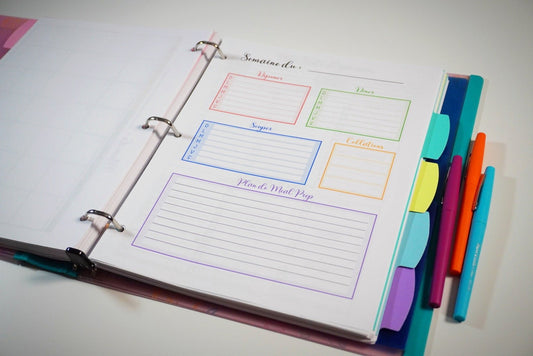 Semaine du :
Déjeuner
Dîner
Souper
Collations
Plan de Meal Prep